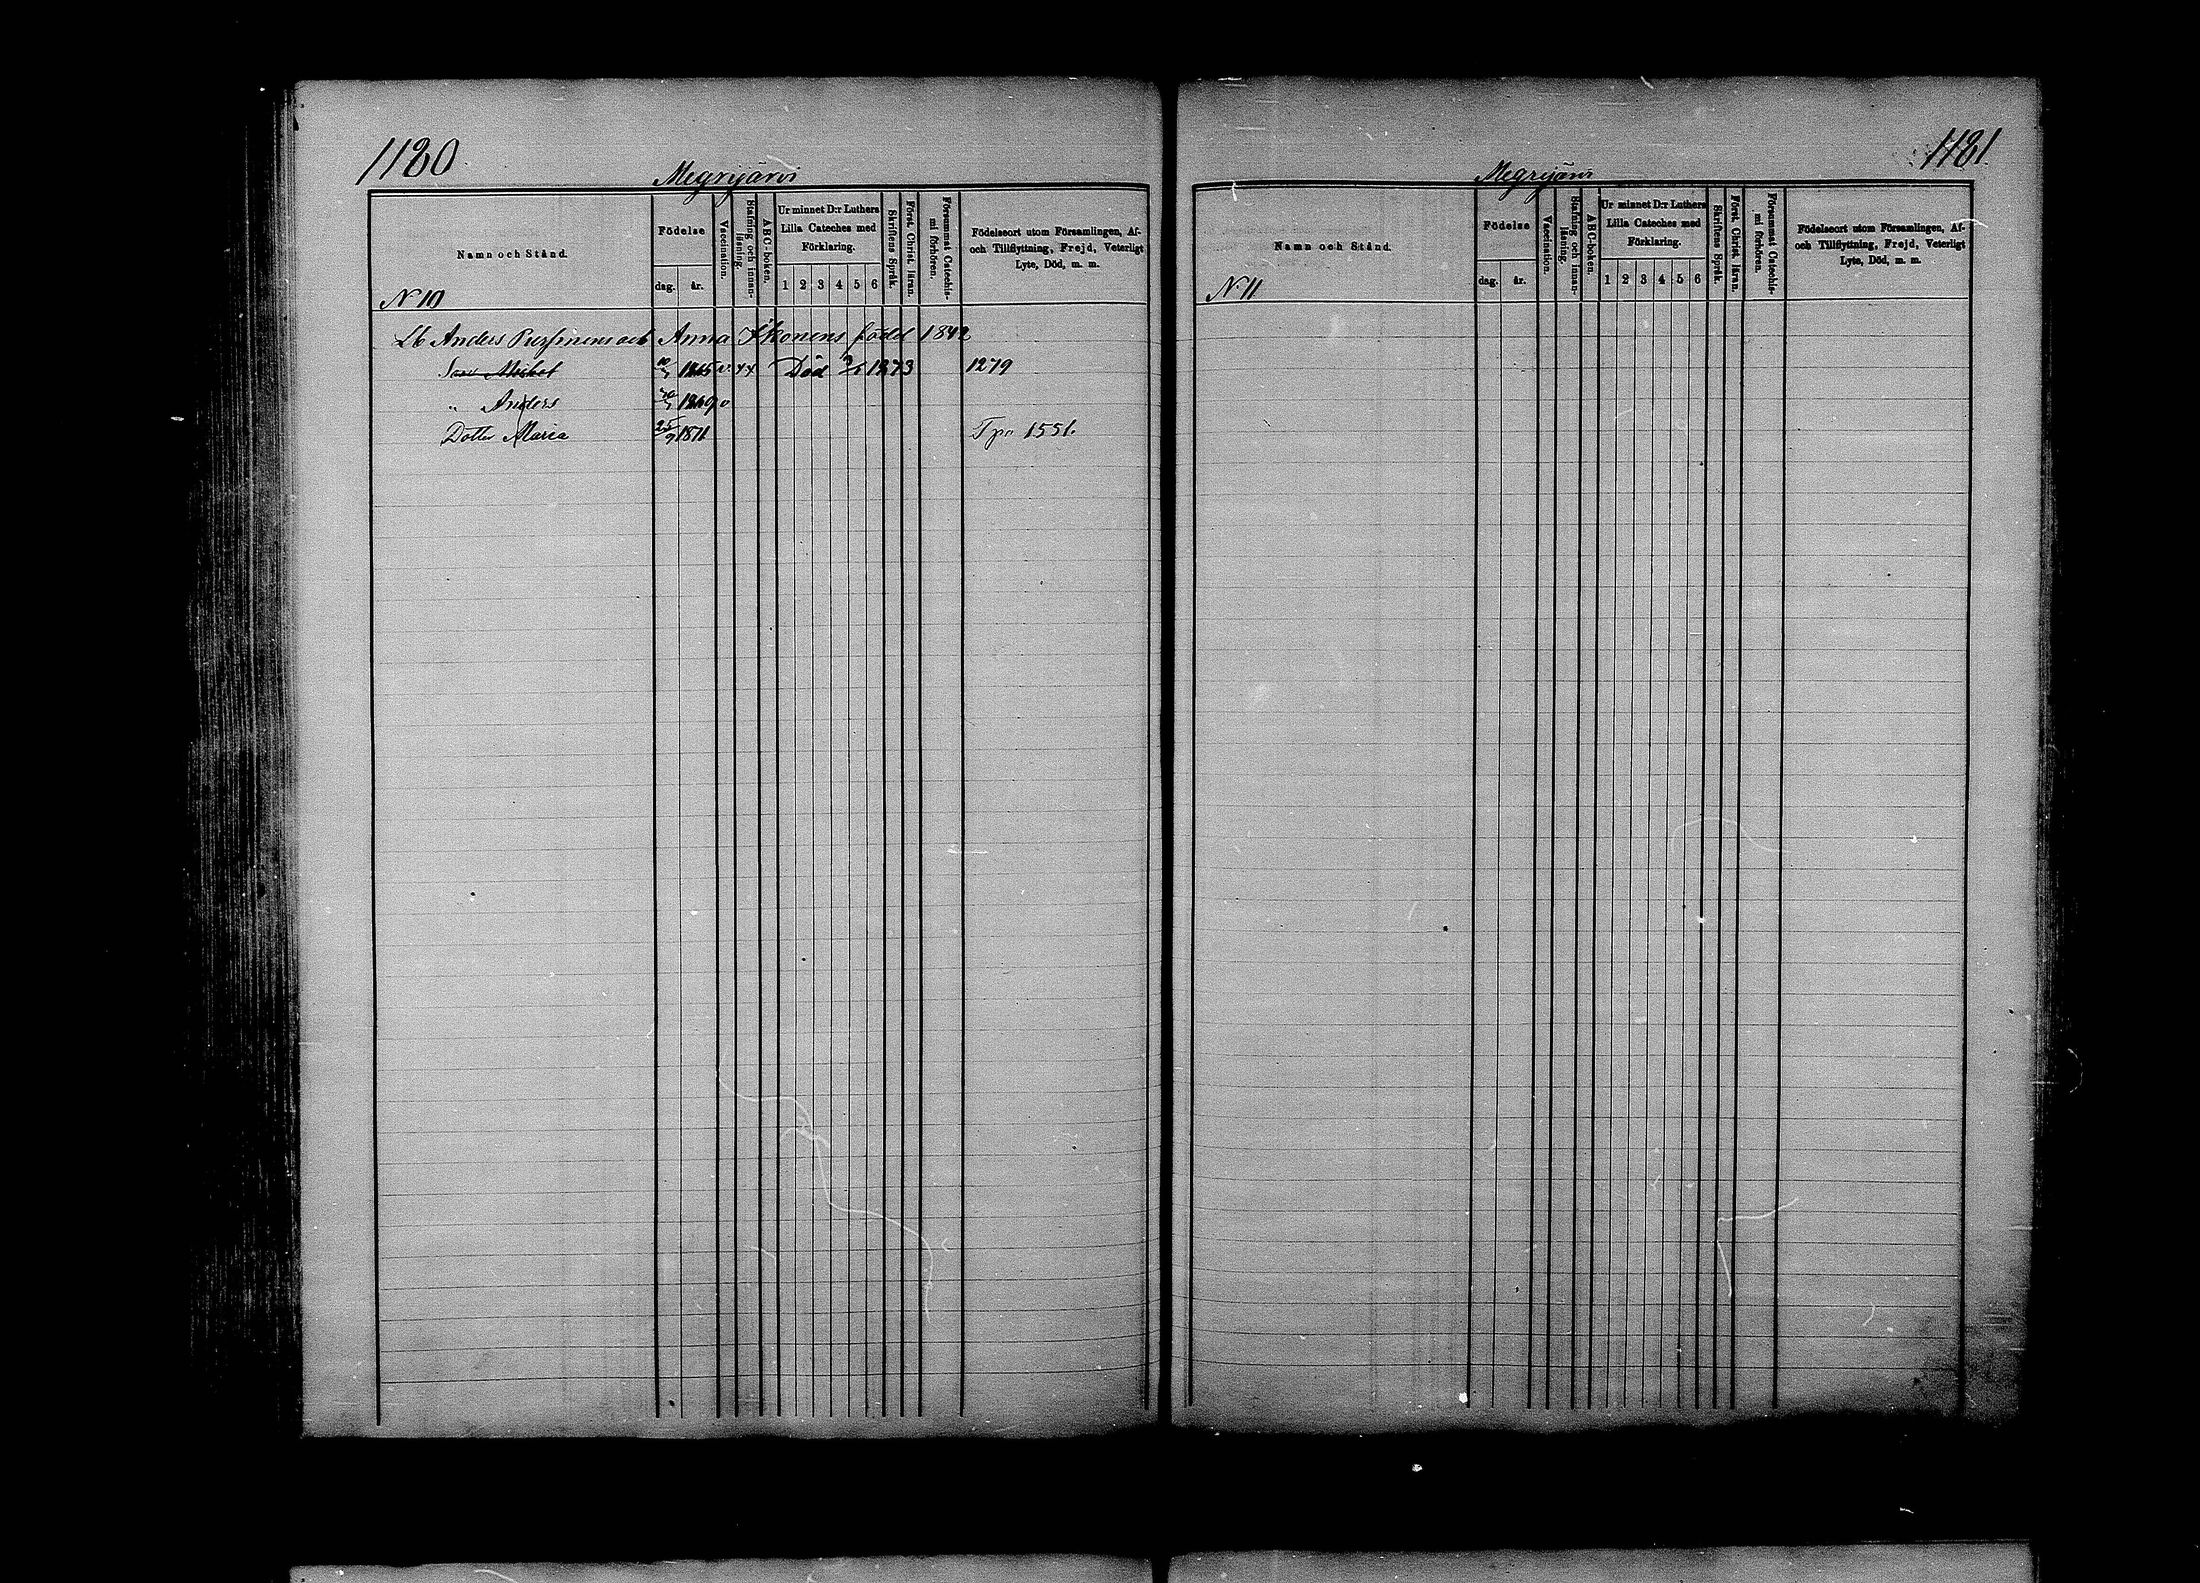 1180
Megrijärvi
Namn och Stånd.
Födelse
dag. år.
Vaccination.
Stafning och innan-läsning.
ABC-boken.
Ur minnet D:r Luthers
Lilla Cateches med
Förklaring.
1 2 3 4 5 6
Skriftens Språk.
Först. Christ. läran.
Försummat Catechis-mi förhören.
Födelseort utom Församlingen, Af-
och Tillflyttning, Frejd, Veterligt
Lyte, Död, m. m.
N 10
Lb Anders och Anna Ikonens född 1842
Son Mikel 1865 v. x x Död 1873 1279
" Anders 1869 v
Dotter Maria 25/9 1871 1551.
1181
Megrijärvi
Namn och Stånd.
Födelse
dag. år.
Vaccination.
Stafning och innan-läsning.
ABC-boken.
Ur minnet D:r Luthers
Lilla Cateches med
Förklaring.
1 2 3 4 5 6
Skriftens Språk.
Först. Christ. läran.
Försummat Catechis-mi förhören.
Födelseort utom Församlingen, Af-
och Tillflyttning, Frejd, Veterligt
Lyte, Död, m. m.
N 11